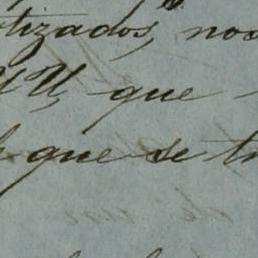 tizados, nos
que
que se tr